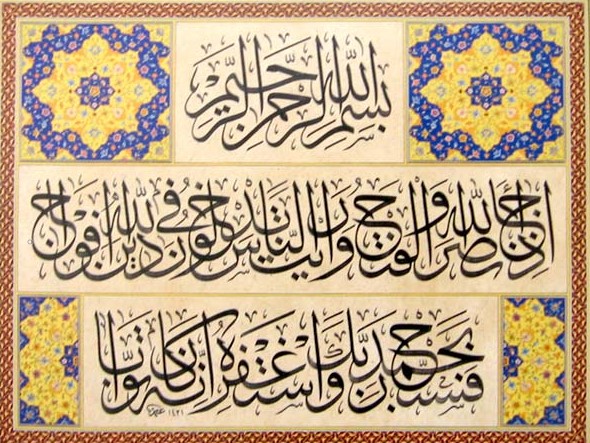 بسم الله الرحمن الرحيم
اذا جاء نصر الله والفتح ورايت الناس يدخلون في دين الله افواجا
فسبح بحمد ربك واستغفره انه كان توابا
١٤٢١